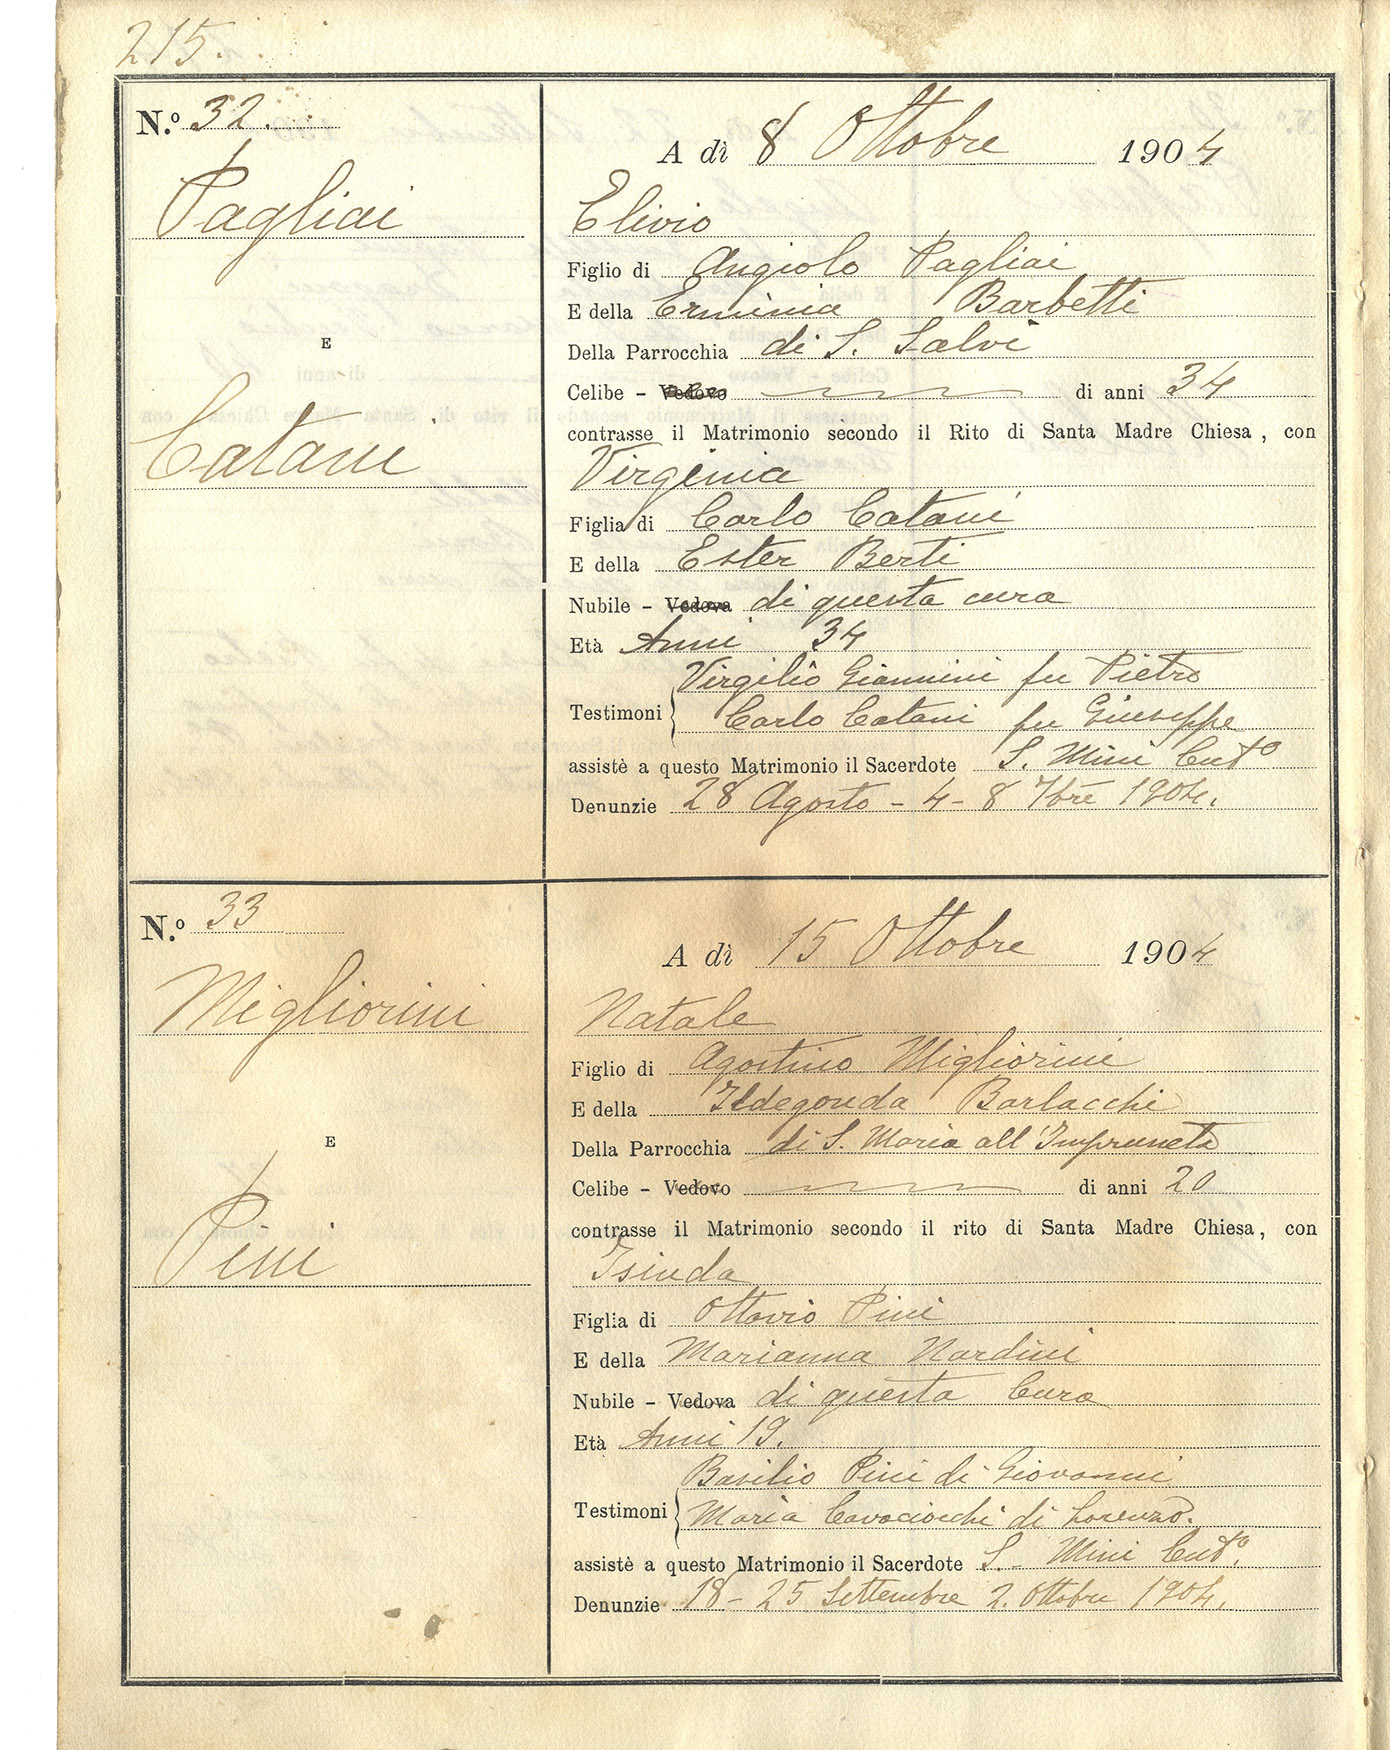 215.
N.º 32.
Pagliai
E
Catani
A dì 8 Ottobre 1904
Elivio
Figlio di Angiolo Pagliai
E della Erminia Barbetti
Della Parrocchia di S. Salvi
Celibe - Vedovo di anni 34
contrasse il Matrimonio secondo il Rito di Santa Madre Chiesa, con
Virginia
Figlia di Carlo Catani
E della Ester Berti
Nubile - Vedova di questa cura
Età Anni 34
Virgilio Giannini fu Pietro
Testimoni
Carlo Catani fu Giuseppe
assistè a questo Matrimonio il Sacerdote S. Mini Cutº
Denunzie 28 Agosto - 4 - 8 7bre 1904.
N.º 33
Migliorini
E
Pini
A dì 15 Ottobre 1904
Natale
Figlio di Agostino Migliorini
E della Ildegonda Barlacchi
Della Parrocchia di S. Maria all'Impruneta
Celibe - Vedovo di anni 20
contrasse il Matrimonio secondo il rito di Santa Madre Chiesa, con
Isinda
Figlia di Ottavio Pini
E della Marianna Nardini
Nubile - Vedova di questa Cura
Età Anni 19.
Basilio Pini di Giovanni
Testimoni
Maria Cavaciocchi di Lorenzo.
assistè a questo Matrimonio il Sacerdote S. Mini Cutº.
Denunzie 18 - 25 Settembre 2. Ottobre 1904.